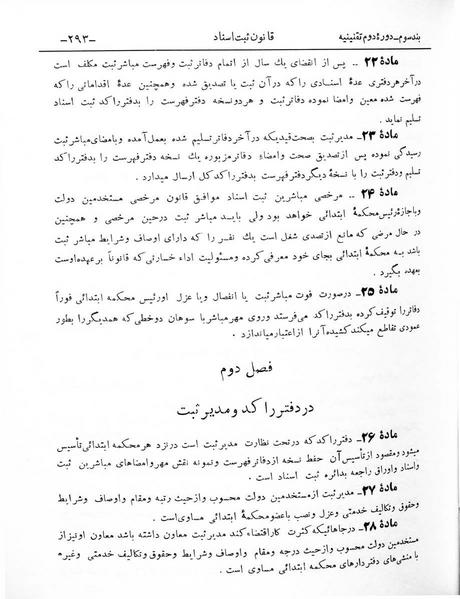 بند سوم ـ دورهٔ دوم تقنینیه
قانون ثبت اسناد
ـ۲۹۳ـ
مادهٔ ۲۲ .. پس از انقضای یك سال از اتمام دفاتر ثبت وفهرست مباشر ثبت مكلف است
در آخر هر دفتری عدهٔ اسنادی را كه در آن ثبت یا تصدیق شده وهمچنین عدهٔ اقداماتی را كه
فهرست شده معین وامضا نموده دفاتر ثبت و هر دو نسخه دفتر فهرست را بدفتر راكد ثبت اسناد
تسلیم نماید .
مادهٔ ۲۳ـ مدیر ثبت بصحت قیدیكه در آخر دفاتر تسلیم شده بعمل آمده وبامضای مباشر ثبت
رسیدگی نموده پس از تصدیق صحت وامضاء دفاتر مزبوره یك نسخه دفتر فهرست را بدفتر راكد
تسلیم ودفتر ثبت را با نسخهٔ دیگر دفتر فهرست بدفتر راكد كل ارسال میدارد .
مادهٔ ۲۴ ـ مرخصی مباشرین ثبت اسناد موافق قانون مرخصی مستخدمین دولت
وباجازهٔ رئیس محكمهٔ ابتدائی خواهد بود ولی باید مباشر ثبت در حین مرخصی و همچنین
در حال مرضی كه مانع از تصدی شغل است یك نفر را كه دارای اوصاف وشرایط مباشر ثبت
باشد به محكمهٔ ابتدائی بجای خود معرفی كرده ومسئولیت اداء خسارتی كه قانوناً بر عهدهٔ اوست
بعهده بگیرد .
مادهٔ ۲۵ـ در صورت فوت مباشر ثبت یا انفصال ویا عزل او رئیس محكمه ابتدائی فوراً
دفاتر را توقیف كرده بدفتر راكد میفرستد وروی مهر مباشر با سوهان دو خطی كه همدیگر را بطور
عمودی تقاطع میكند كشیده آنرا از اعتبار میاندازد .
فصل دوم
در دفتر راكد و مدیر ثبت
مادهٔ ۲۶ ـ دفتر راكد كه در تحت نظارت مدیر ثبت است در نزد هر محكمهٔ ابتدائی تأسیس
میشود ومقصود از تأسیس آن حفظ نسخه از دفاتر فهرست ونمونه نقش مهر وامضاهای مباشرین ثبت
واسناد واوراق راجعه بدائره ثبت اسناد است .
مادهٔ ۲۷ ـ مدیر ثبت از مستخدمین دولت محسوب و از حیث رتبه ومقام و اوصاف وشرایط
وحقوق وتكالیف خدمتی وعزل ونصب با عضو محكمهٔ ابتدائی مساوی است .
مادهٔ ۲۸ ـ در جاهائیكه كثرت كار اقتضاء كند مدیر ثبت معاون داشته باشد معاون او نیز از
مستخدمین دولت محسوب و از حیث درجه ومقام و اوصاف وشرایط وحقوق وتكالیف خدمتی وغیره
با منشی‌های دفتردارهای محكمه ابتدائی مساوی است .